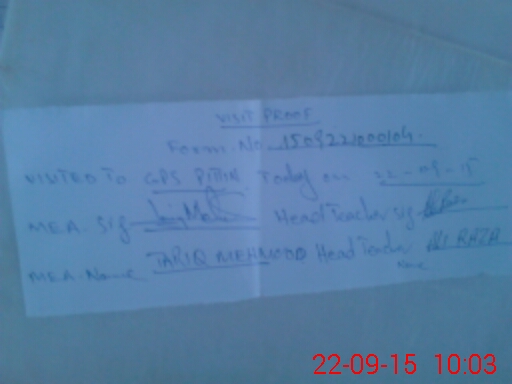 VISIT PROOF
Form. No. 150922000104.
VISITED TO GPS PITHN Today on 22-09-15
MEA. Sig Head Teacher sig
MEA. Name TARIQ MEHMOOD Head Teacher ALI RAZA
Name
22-09-15 10:03